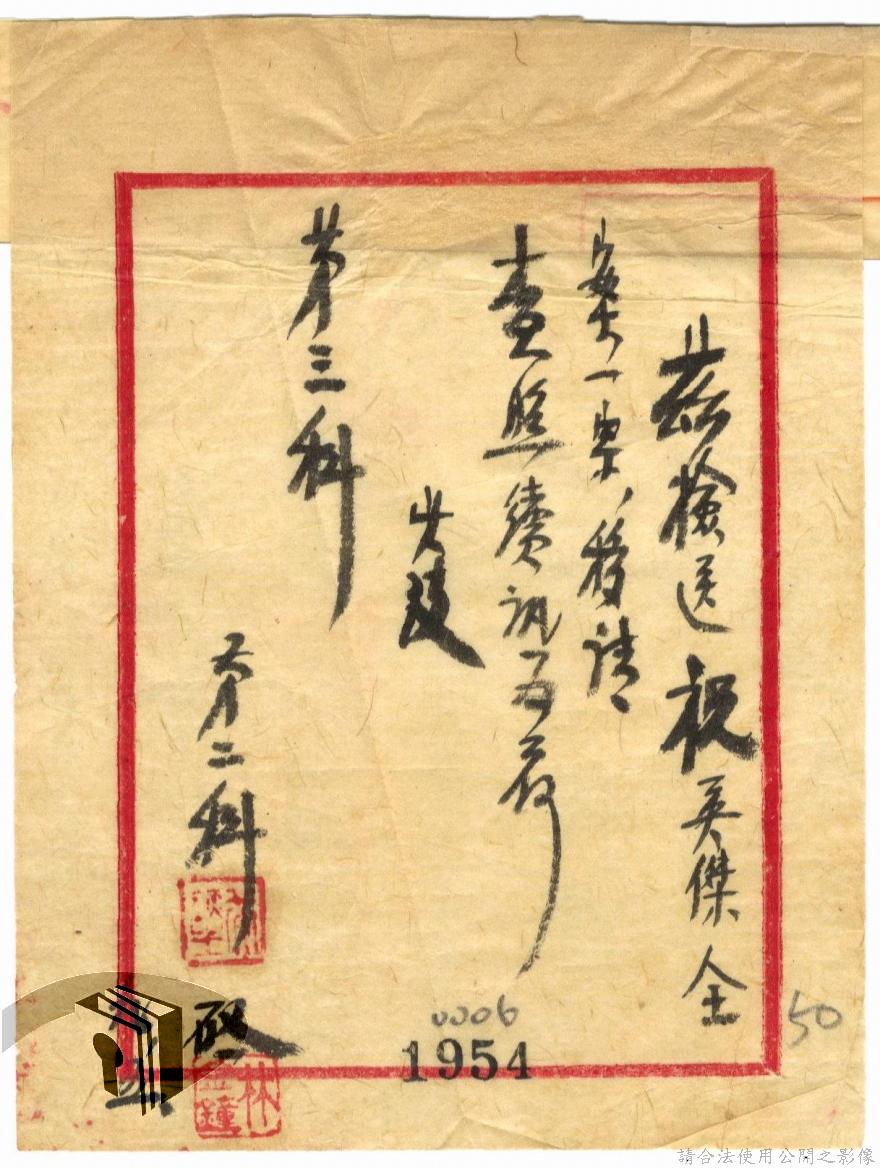 茲檢送祝英傑全
案一宗,移請
查照續訊為荷
此致
第三科
第二科
啟
林
鐘
0006
1954
50
請合法使用公開之影像